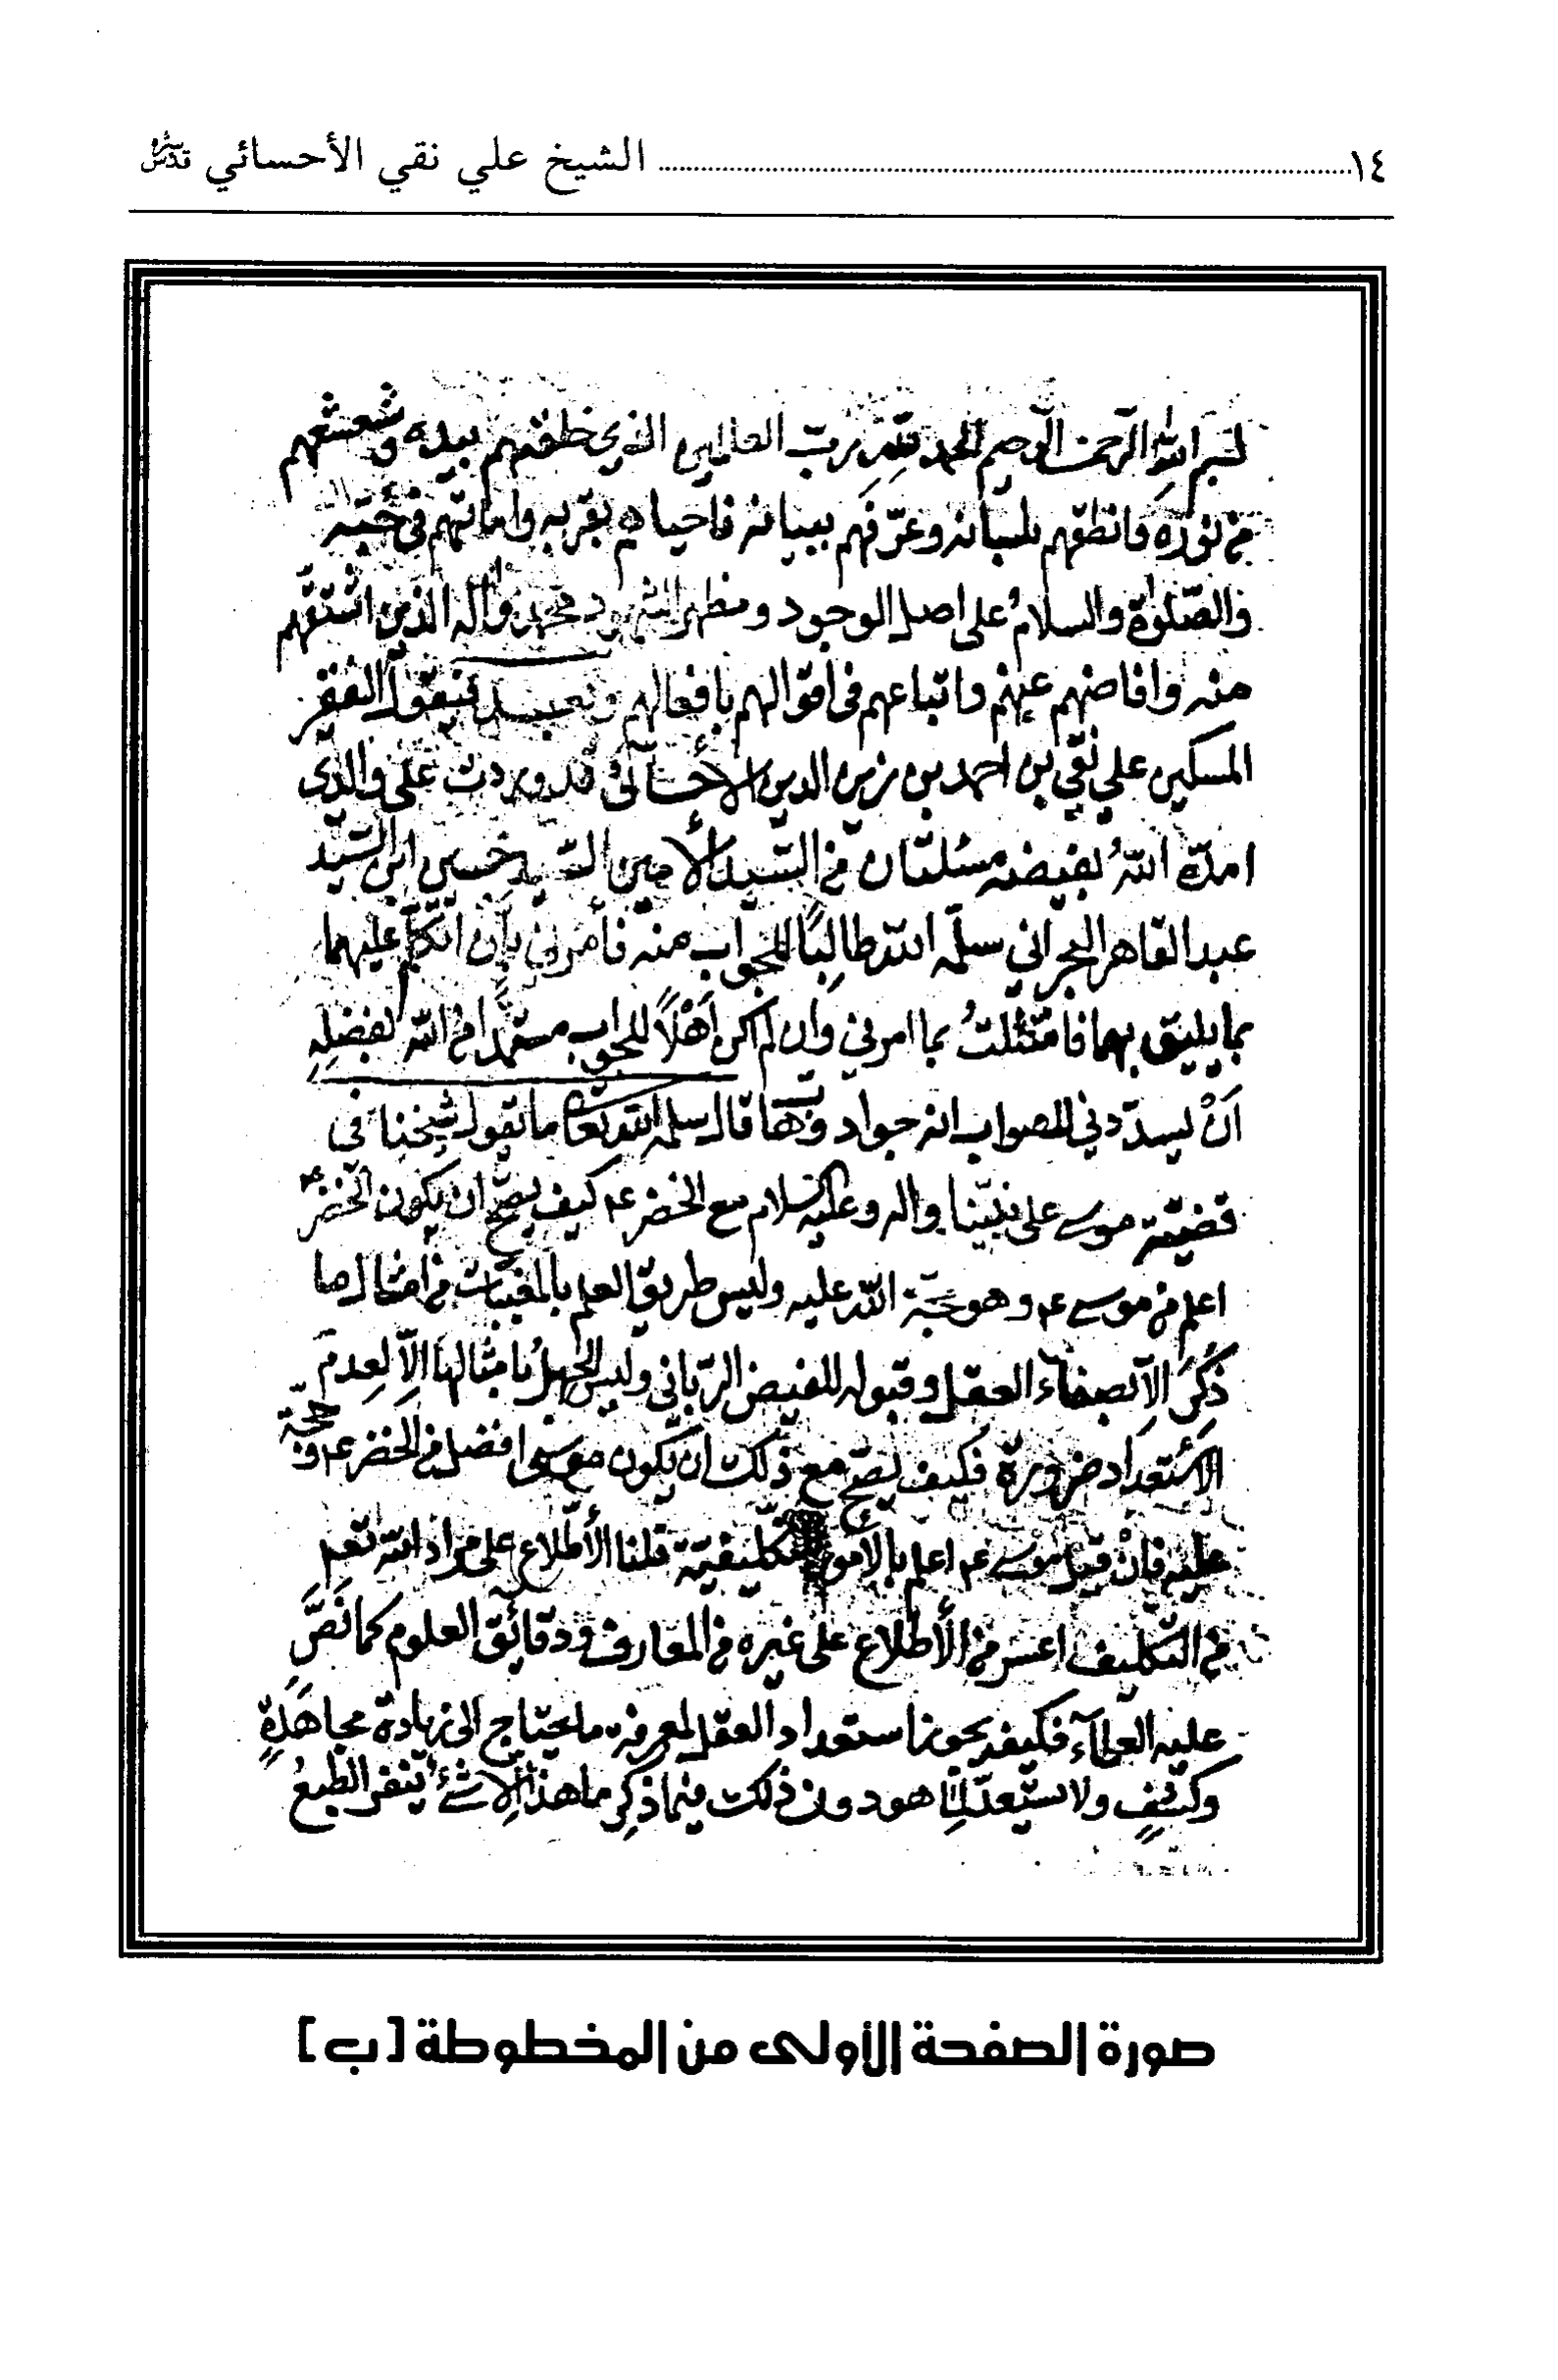 ١٤ ........ الشيخ علي نقي الأحسائي قدس سره
بسم الله الرحمن الرحيم الحمد لله رب العالمين الذي خلقهم بيده وشعشعهم
من نوره وانطقهم بلسانه وعرّفهم ببيانه فاحياهم بقربه واماتهم في حبّه
والصّلوٰة والسلامُ على اصل الوجود ومظهر الشهود محمد واٰله الذين اشتقّهم
منه وافاضهم عنهم واتباعهم في اقوالهم بافعالهم وبعــد فيقول الفقير
المسكين علي نقي بن احمد بن زين الدين الأحسآئي قد وردت على والدي
امدّه اللهُ بفيضه مسئلتان من السّيد الأمين السّيد حسين ابن السّيّد
عبد القاهر البحراني سلّمه الله طالبًا للجواب منه فأمرني بأن اتكلّم عليهما
بما يليق بهما فامتثلتُ بما امرني وان لم اكن اَهْلًا للجواب مستمدا من الله بفضلِهِ
اَنْ يسدّدني للصواب انه جواد وهّاب قال سلمه الله تعالى ما تقول شيخنا في
قضيّة موسى على نبيّنا واله وعليه السلام مع الخضر ع كيف يصحّ ان يكون الخضر ع
اعلم من موسى ع وهو حجّة الله عليه وليس طريق العلم بالمغيبات من امثال ما
ذُكِرَ الّا بصفاء العقل وقبوله للفيض الرّباني وليس الجهلُ بامثالها الّا لِعدم
الاستعداد ضرورة فكيف يصحّ مع ذلك ان يكون موسى افضل من الخضر ع وحجّة
عليه فاِنْ قيل موسى ع اعلم بالامور التكليفيّة قلنا الأطّلاع على مراد الله تعم
من التكليف اعسر من الأطّلاع على غيره من المعارف ودقائق العلوم كما نَصَّ
عليه العلمآء فكيف يجوز استعداد العقل لمعرفة ما يحتاج الى زيادة مجاهَدةٍ
وكشفٍ ولا يستعدّ لما هو دون ذلك فيما ذُكِر ما هذا اِلّا شئ ينفر الطبعُ
صورة الصفحة الأولى من المخطوطة [ب]